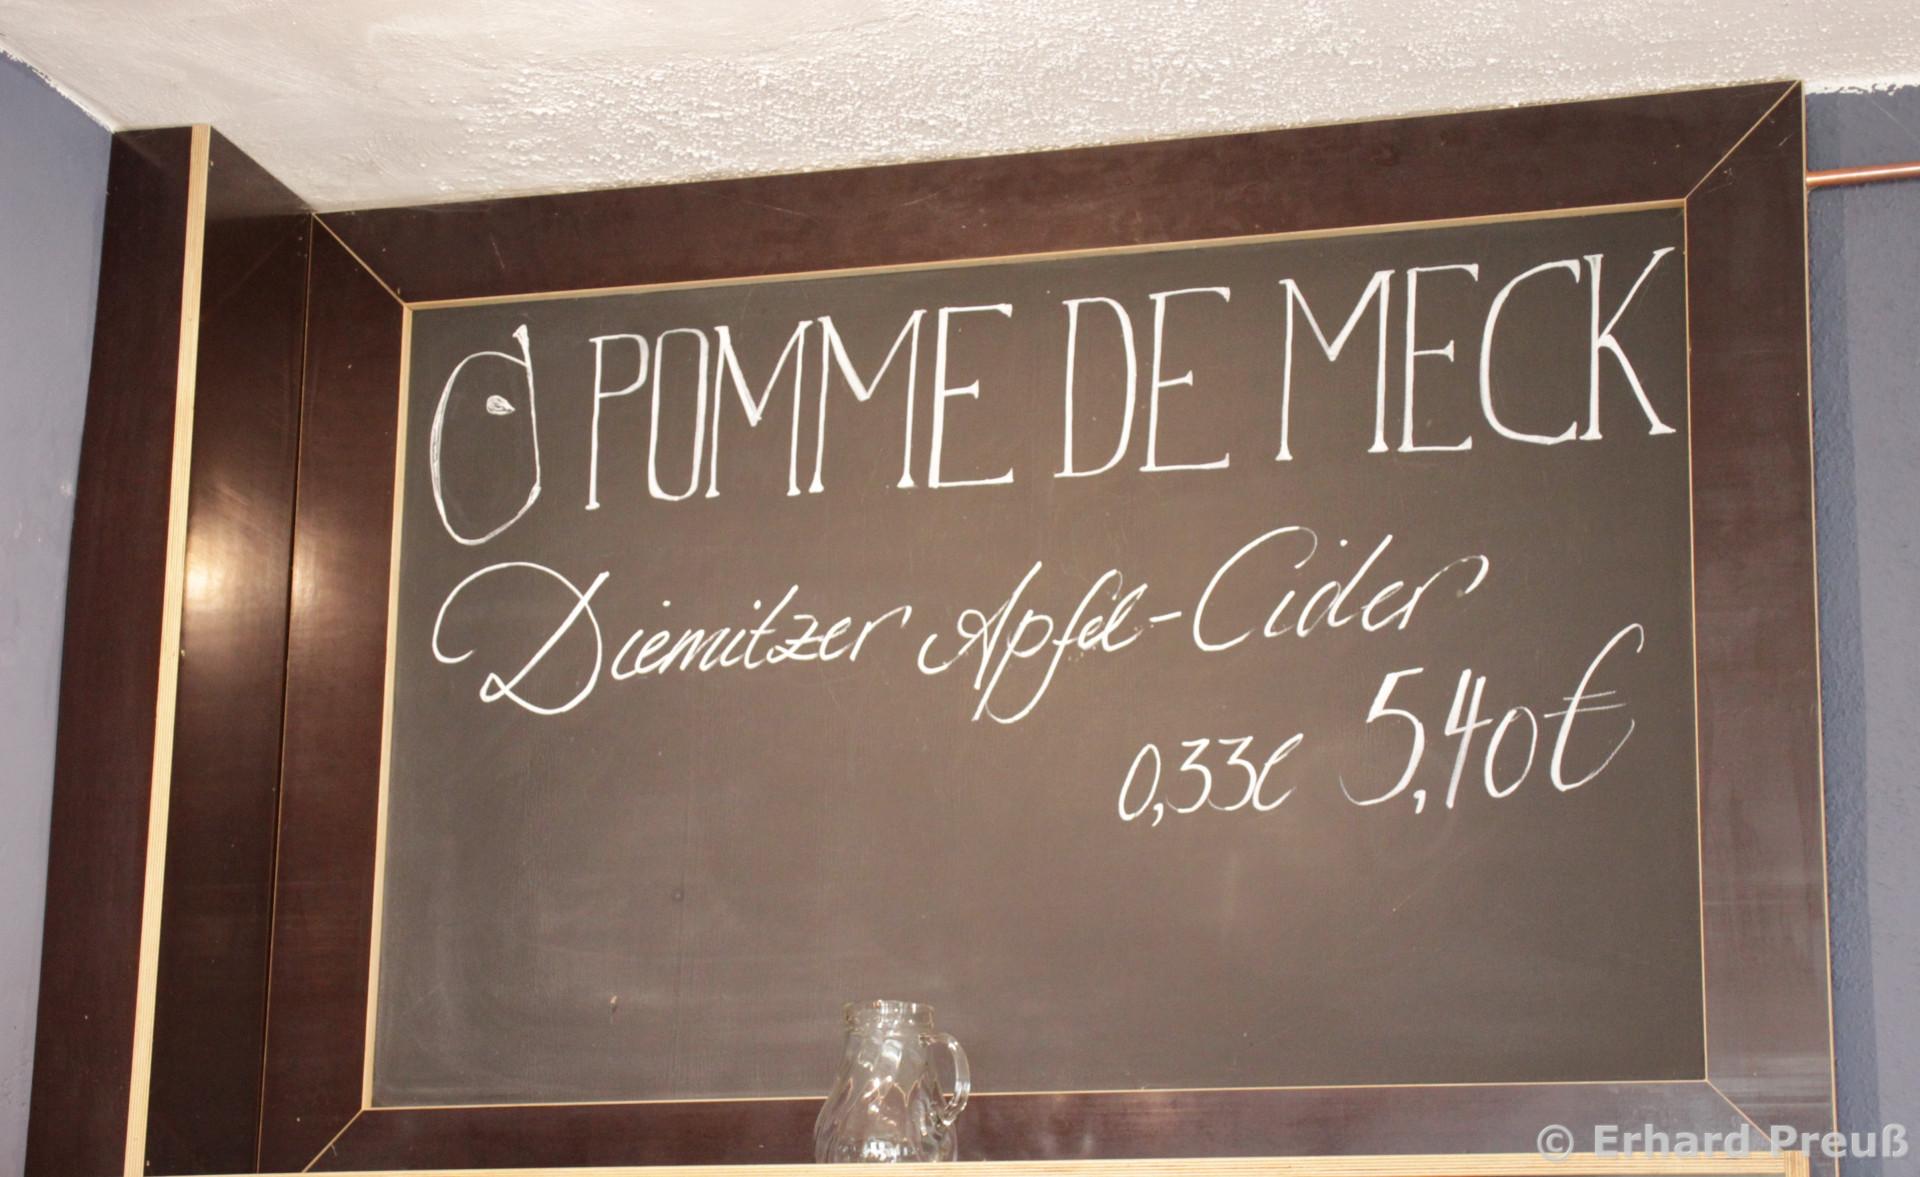 POMME DE MECK
Diemitzer Apfel-Cider
0,33l 5,40€
© Erhard Preuß